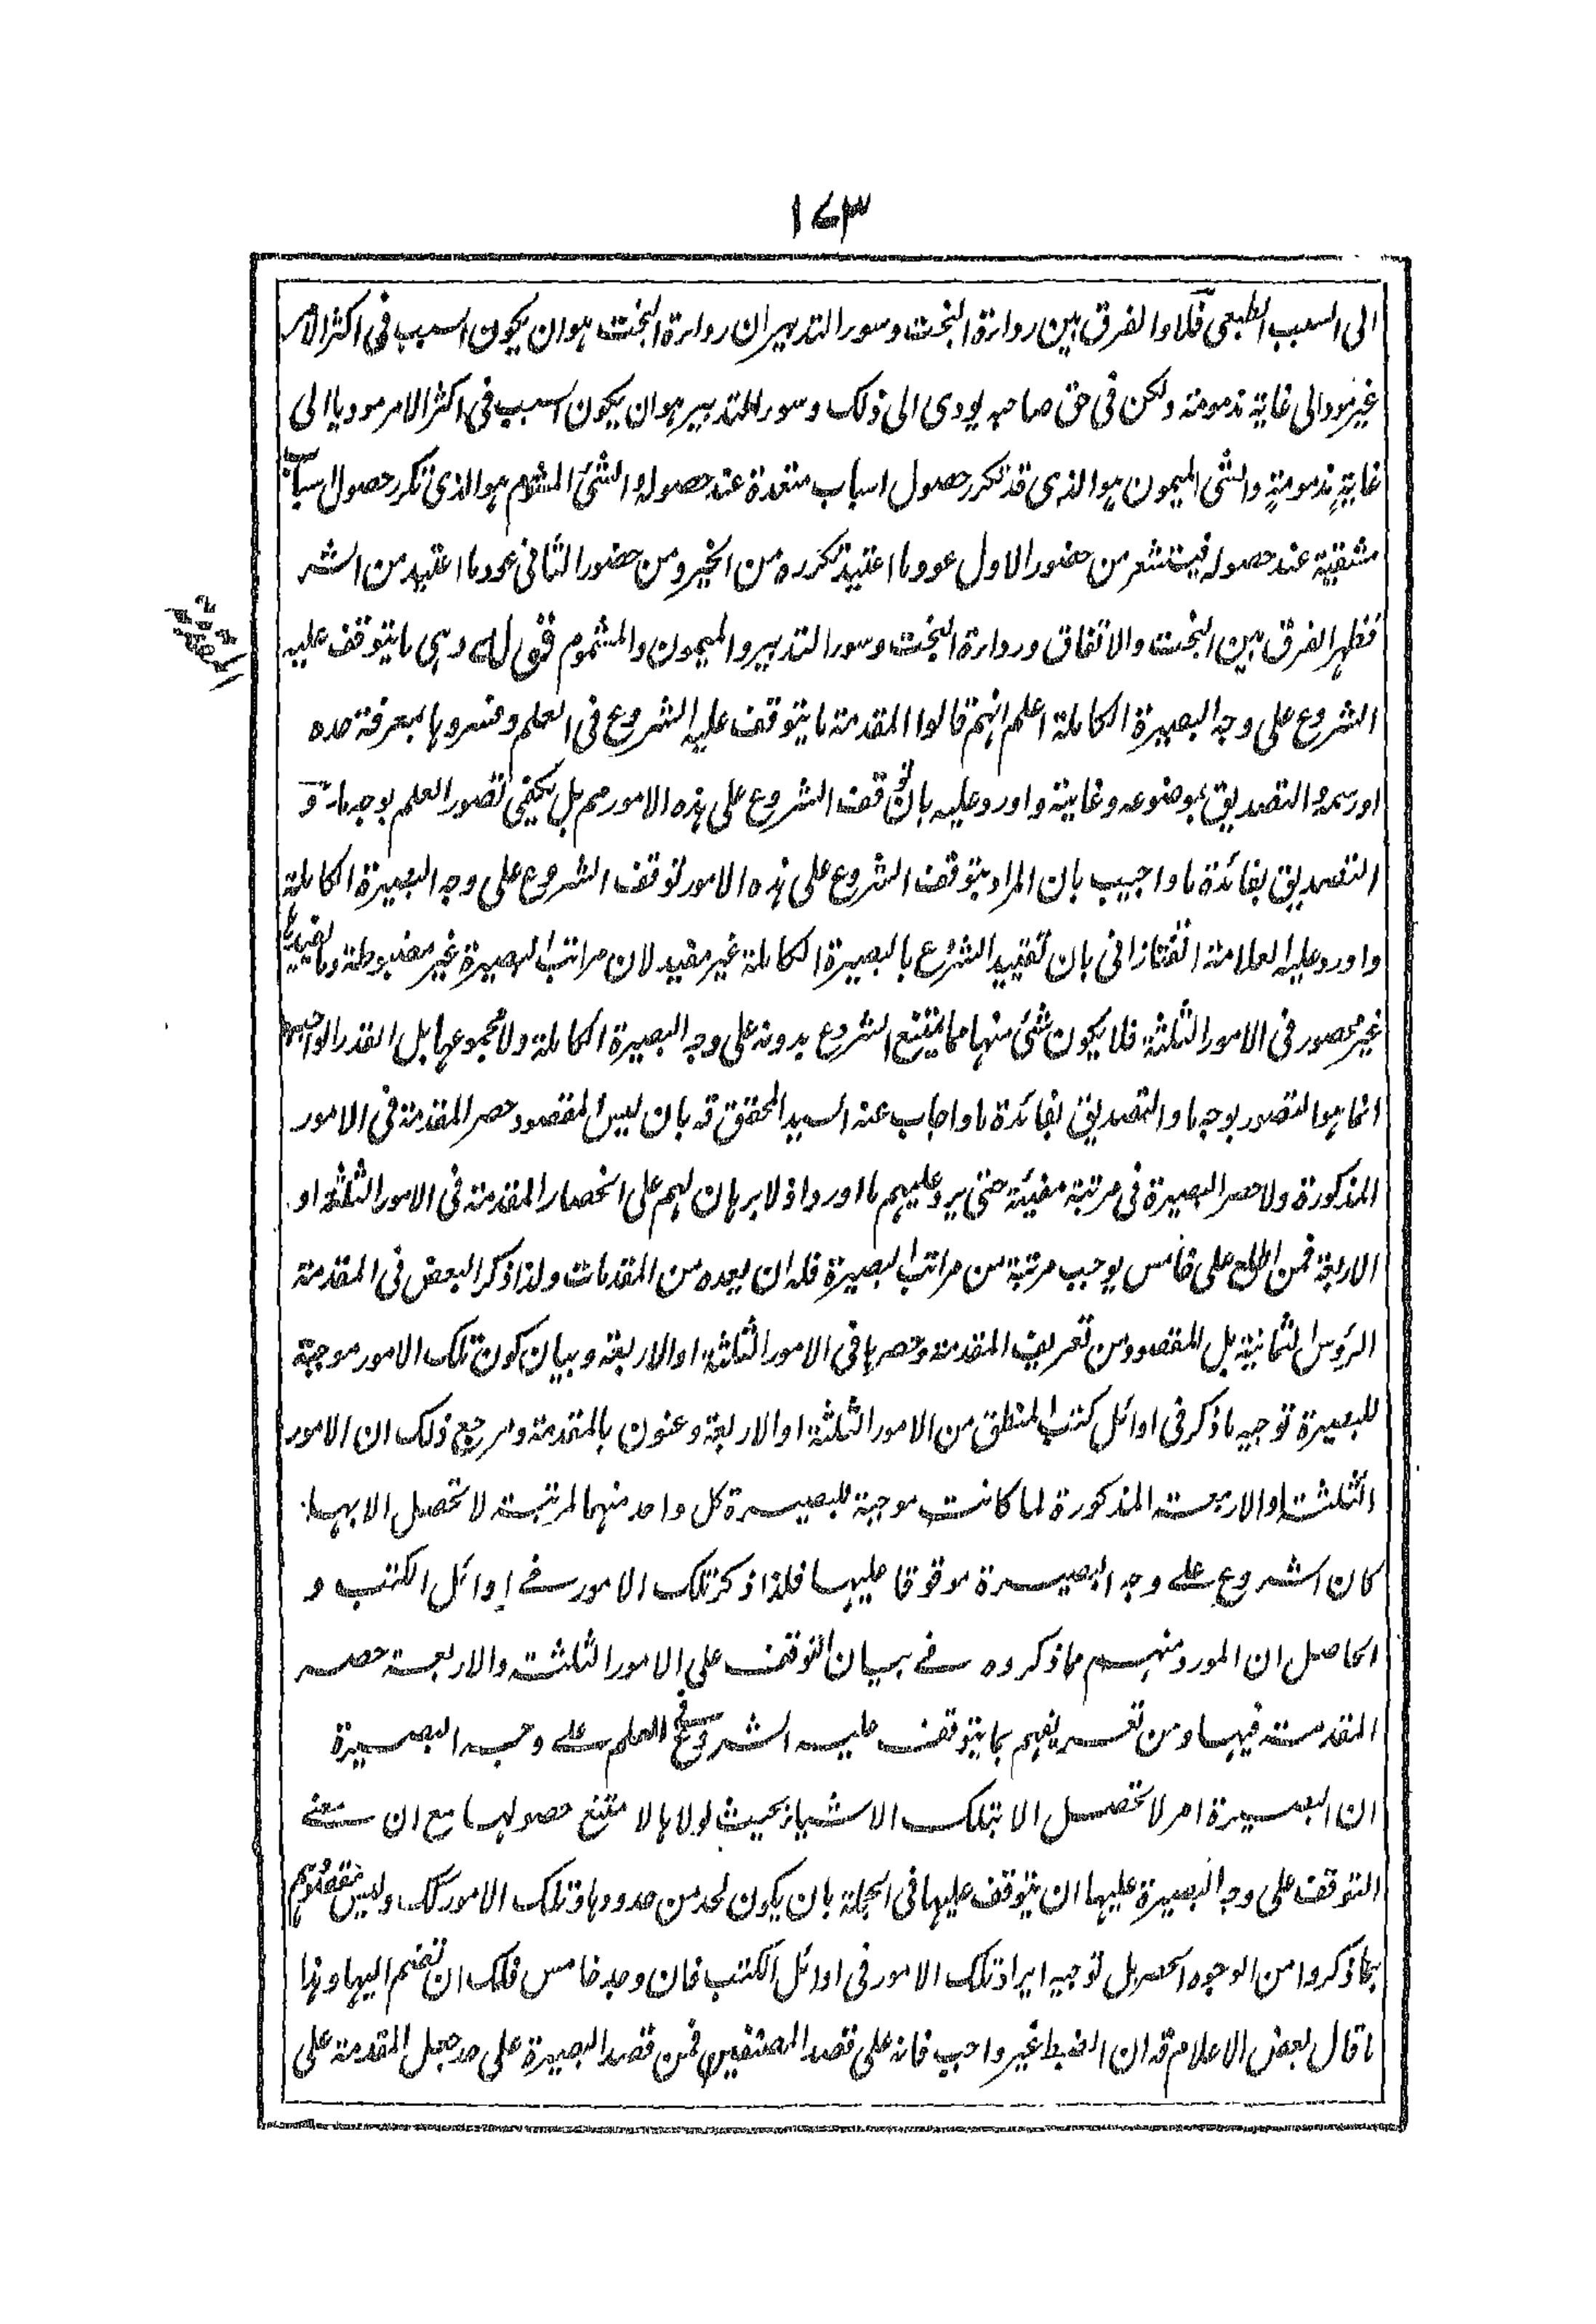 ١٧٣
الى السبب الطبعى فلا والفرق بين رداءة البخت وسوء التدبير ان رداءة البخت هو ان يكون السبب فى اكثر الامر
غير مود الى غاية مذمومة ولكن فى حق صاحبه يودى الى ذلك وسوء التدبير هو ان يكون السبب فى اكثر الامر موديا الى
غاية مذمومة والشئ الميمون هو الذى قد تكرر حصول اسباب متعددة عند حصوله والشئ المشوم هو الذى تكرر حصول اسباب
مشقية عند حصوله فيستشعر من حضور الاول عود ما اعتيد تكرره من الخير ومن حضور الثانى عود ما اعتيد من الشر
فظهر الفرق بين البخت والاتفاق ورداءة البخت وسوء التدبير والميمون والمشوم قوله وهى ما يتوقف عليه
الشروع على وجه البصيرة الكاملة اعلم انهم قالوا المقدمة ما يتوقف عليه الشروع فى العلم وفسروها بمعرفة حده
او رسمه والتصديق بموضوعه وغايته واورد عليه بان توقف الشروع على هذه الامور مم بل يكفى تصور العلم بوجه ما و
التصديق بفائدة ما واجيب بان المراد بتوقف الشروع على هذه الامور توقف الشروع على وجه البصيرة الكاملة
واورد عليه العلامة التفتازانى بان تقييد الشروع بالبصيرة الكاملة غير مفيد لان مراتب البصيرة غير مضبوطة وما يفيدها
غير محصور فى الامور الثلثة فلا يكون شئ منها مما يمتنع الشروع بدونه على وجه البصيرة الكاملة ولا مجموعها بل القدر الواجب
انما هو التصور بوجه ما والتصديق بفائدة ما واجاب عنه السيد المحقق قه بان ليس المقصود حصر المقدمة فى الامور
المذكورة ولا حصر البصيرة فى مرتبة معينة حتى يرد عليهم ما اورد اذ لا برهان لهم على انحصار المقدمة فى الامور الثلثة او
الاربعة فمن اطلع على خامس يوجب مرتبة من مراتب البصيرة فله ان يعده من المقدمات ولذا ذكر البعض فى المقدمة
الرؤس الثمانية بل المقصود من تعريف المقدمة وحصرها فى الامور الثلثة او الاربعة وبيان كون تلك الامور موجبة
للبصيرة توجيه ما ذكر فى اوائل كتب المنطق من الامور الثلثة او الاربعة وعنون بالمقدمة ومرجع ذلك ان الامور
الثلثة او الاربعة المذكورة لما كانت موجبة للبصيرة كل واحد منهما لمرتبة لا تحصل الا بها
كان الشروع على وجه البصيرة موقوفا عليها فلذا ذكر تلك الامور فى اوائل الكتب و
الحاصل ان المورد منهم مما ذكروه فى بيان التوقف على الامور الثلثة والاربعة حصر
المقدمة فيها ومن تعريفهم بما يتوقف عليه الشروع فى العلم على وجه البصيرة
ان البصيرة امر لا تحصل الا بتلك الاشياء بحيث لولاها لا متنع حصولها مع ان معنى
التوقف على وجه البصيرة عليها ان يتوقف عليها فى الجملة بان يكون لحد من حدودها وتلك الامور كك وليس مقصودهم
بما ذكروا من الوجوه الحصر بل توجيه ايراد تلك الامور فى اوائل الكتب فان وجد خامس فلك ان تضم اليها وهذا
ما قال بعض الاعلام قه ان الضبط غير واجب فانه على قصد المصنفين فمن قصد البصيرة على حد جعل المقدمة على